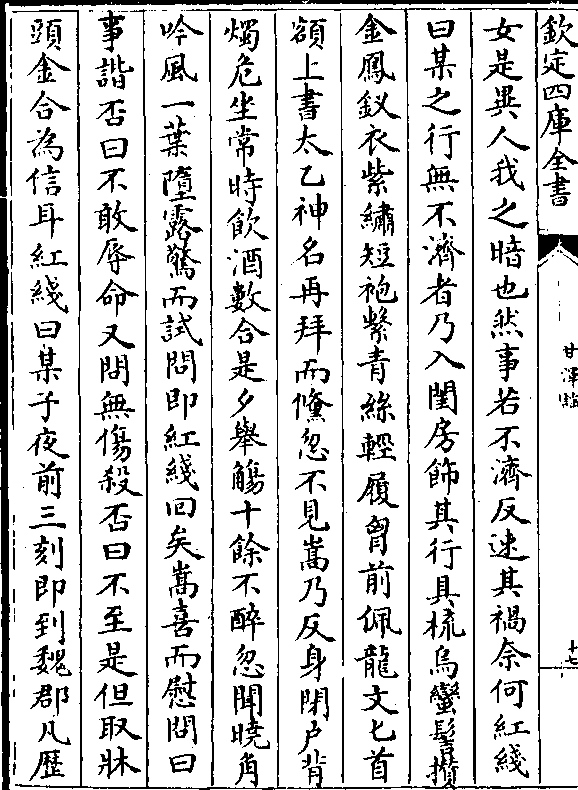 欽定四庫全書
甘澤謠
十七
女是異人我之暗也然事若不濟反速其禍奈何紅綫
曰某之行無不濟者乃入閨房飾其行具梳烏蠻髻攢
金鳳釵衣紫繡短袍繫青絲輕履胷前佩龍文匕首
額上書太乙神名再拜而儵忽不見嵩乃反身閉户背
燭危坐常時飲酒數合是夕舉觴十餘不醉忽聞曉角
吟風一葉墮露驚而試問即紅綫回矣嵩喜而慰問曰
事諧否曰不敢辱命又問無傷殺否曰不至是但取牀
頭金合為信耳紅綫曰某子夜前三刻即到魏郡凡歴